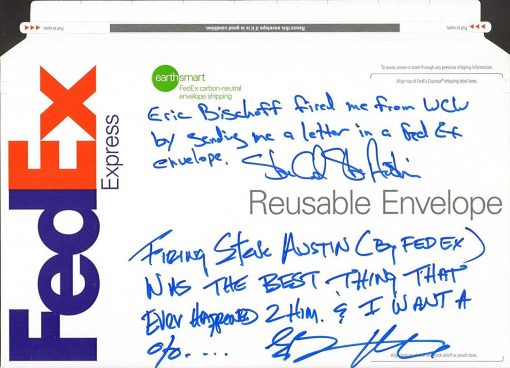 Pull to open.
Reuse this envelope if it is in good condition.
Pull to open.
To reuse, cover or mark through any previous shipping information.
Align top of FedEx Express® shipping label here.
earthsmart
FedEx carbon-neutral
envelope shipping
Eric Bischoff fired me from WCW
by sending me a letter in a Fed Ex
envelope. Stone Cold Steve Austin
FedEx
Express
Reusable Envelope
FIRING STEVE AUSTIN (By FED EX)
WAS THE BEST THING THAT
EVER HAPPENED 2 HIM. & I WANT A
%....